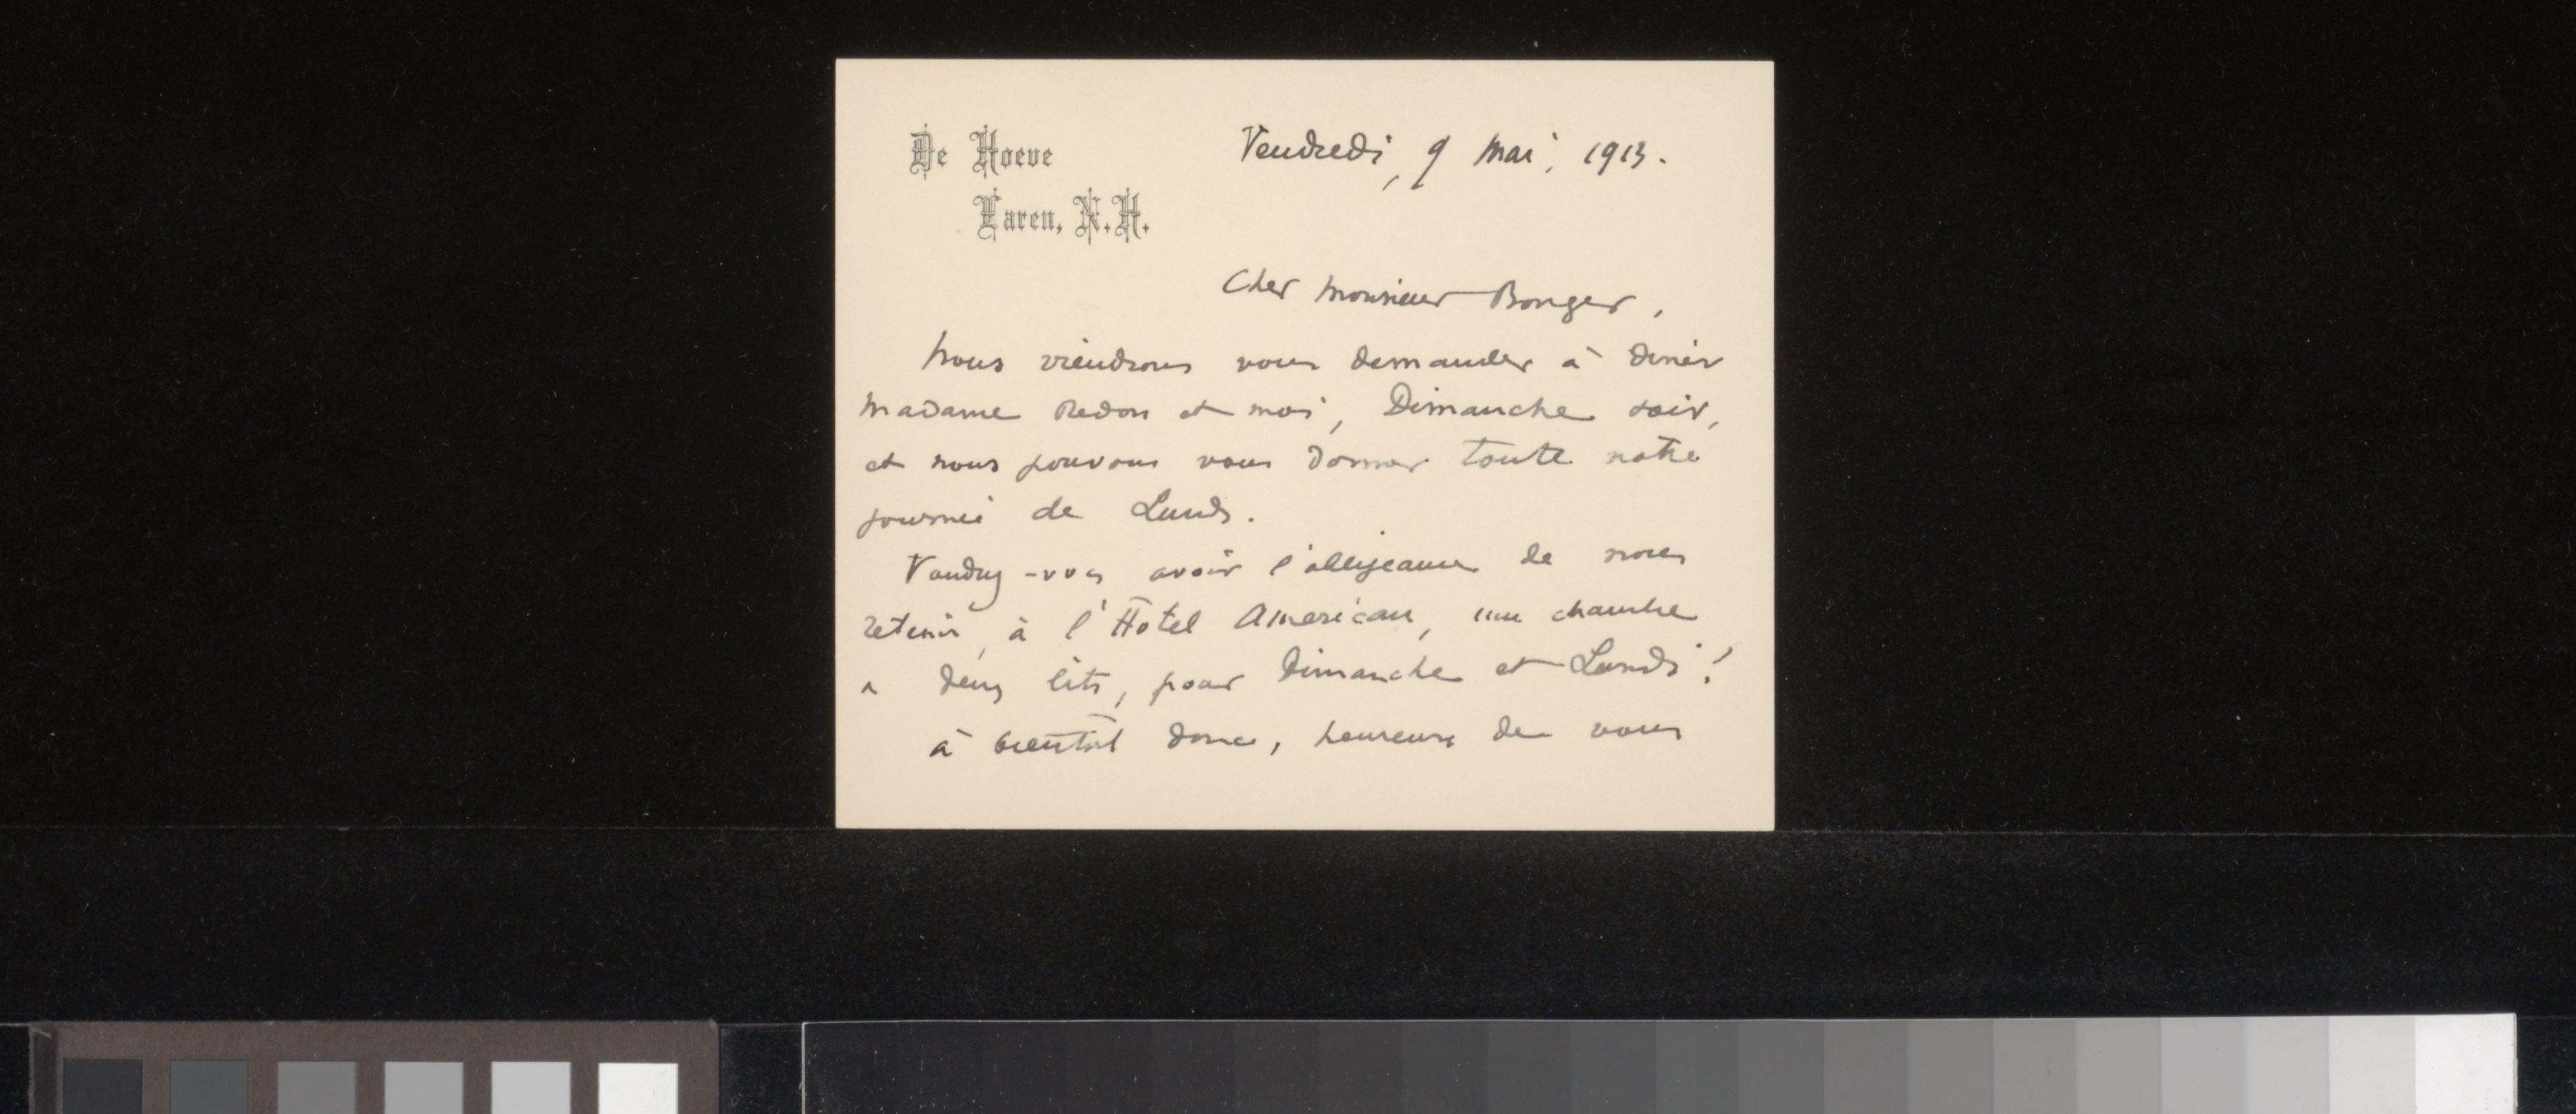 De Hoeve
Laren, N.H.
Vendredi, 9 mai, 1913.
Cher monsieur Bonger,
Nous viendrons vous demander à diner
madame Redon et moi, Dimanche soir,
et nous pouvons vous donner toute notre
journée de Lundi.
Voudrez-vous avoir l'obligeance de nous
retenir, à l'Hôtel American, une chambre
à deux lits, pour Dimanche et Lundi!
à bientôt donc, heureux de vous